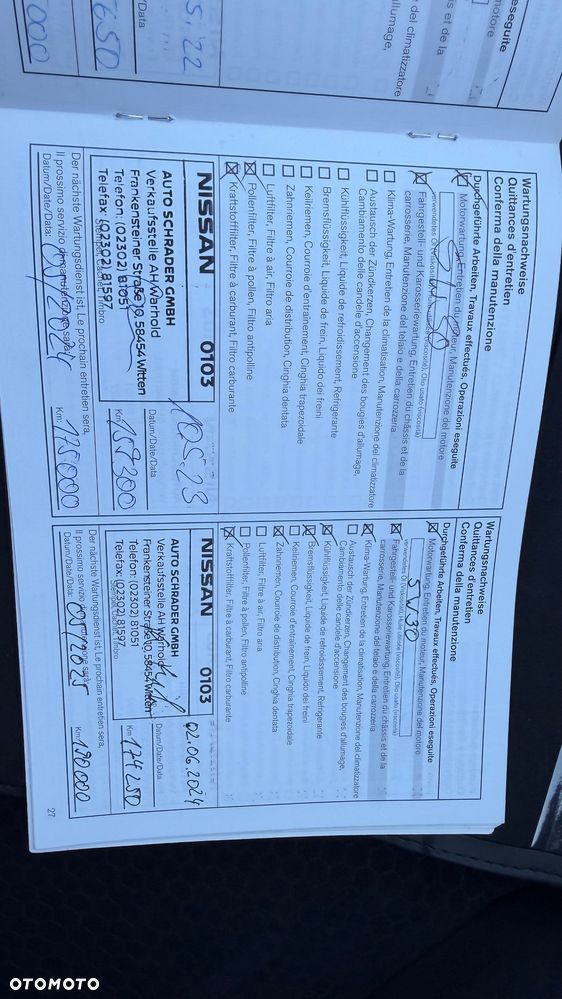 eseguite
motore
s et de la
del climatizzatore
allumage,
Wartungsnachweise
Quittances d'entretien
Conferma della manutenzione
Durchgeführte Arbeiten, Travaux effectués, Operazioni eseguite
Motorwartung, Entretien du moteur, Manutenzione del motore
5W30
Fahrgestell- und Karosseriewartung, Entretien du châssis et de la
carrosserie, Manutenzione del telaio e della carrozzeria
Klima-Wartung, Entretien de la climatisation, Manutenzione del climatizzatore
Austausch der Zündkerzen, Changement des bougies d'allumage,
Cambiamento delle candele d'accensione
Kühlflüssigkeit, Liquide de refroidissement, Refrigerante
Bremsflüssigkeit, Liquide de frein, Liquido dei freini
Keilriemen, Courroie d'entraînement, Cinghia trapezoidale
Zahnriemen, Courroie de distribution, Cinghia dentata
Luftfilter, Filtre à air, Filtro aria
Pollenfilter, Filtre à pollen, Filtro antipolline
Kraftstofffilter, Filtre à carburant, Filtro carburante
NISSAN 0103
AUTO SCHRADER GMBH
Verkaufsstelle AH Warhold
Frankensteiner Straße 10, 58454 Witten
Telefon: (02302) 81051
Telefax: (02302) 81597
10.5.23
Datum/Date/Data
Km 157300
Der nächste Wartungsdienst ist, Le prochain entretien sera,
Il prossimo servizio di manutenzione sarà
Datum/Date/Data: 05/2024
Km: 175000
Wartungsnachweise
Quittances d'entretien
Conferma della manutenzione
Durchgeführte Arbeiten, Travaux effectués, Operazioni eseguite
Motorwartung, Entretien du moteur, Manutenzione del motore
verwendetes Öl (Viskosität), Huile utilisée (viscosité), Olio usato (viscosità)
5W30
Fahrgestell- und Karosseriewartung, Entretien du châssis et de la
carrosserie, Manutenzione del telaio e della carrozzeria
Klima-Wartung, Entretien de la climatisation, Manutenzione del climatizzatore
Austausch der Zündkerzen, Changement des bougies d'allumage,
Cambiamento delle candele d'accensione
Kühlflüssigkeit, Liquide de refroidissement, Refrigerante
Bremsflüssigkeit, Liquide de frein, Liquido dei freini
Keilriemen, Courroie d'entraînement, Cinghia trapezoidale
Zahnriemen, Courroie de distribution, Cinghia dentata
Luftfilter, Filtre à air, Filtro aria
Pollenfilter, Filtre à pollen, Filtro antipolline
Kraftstofffilter, Filtre à carburant, Filtro carburante
NISSAN 0103
AUTO SCHRADER GMBH
Verkaufsstelle AH Warhold
Frankensteiner Straße 10, 58454 Witten
Telefon: (02302) 81051
Telefax: (02302) 81597
02.06.2024
Datum/Date/Data
Km 174250
Der nächste Wartungsdienst ist, Le prochain entretien sera,
Il prossimo servizio
Datum/Date/Data:
Km: 190000
27
OTOMOTO